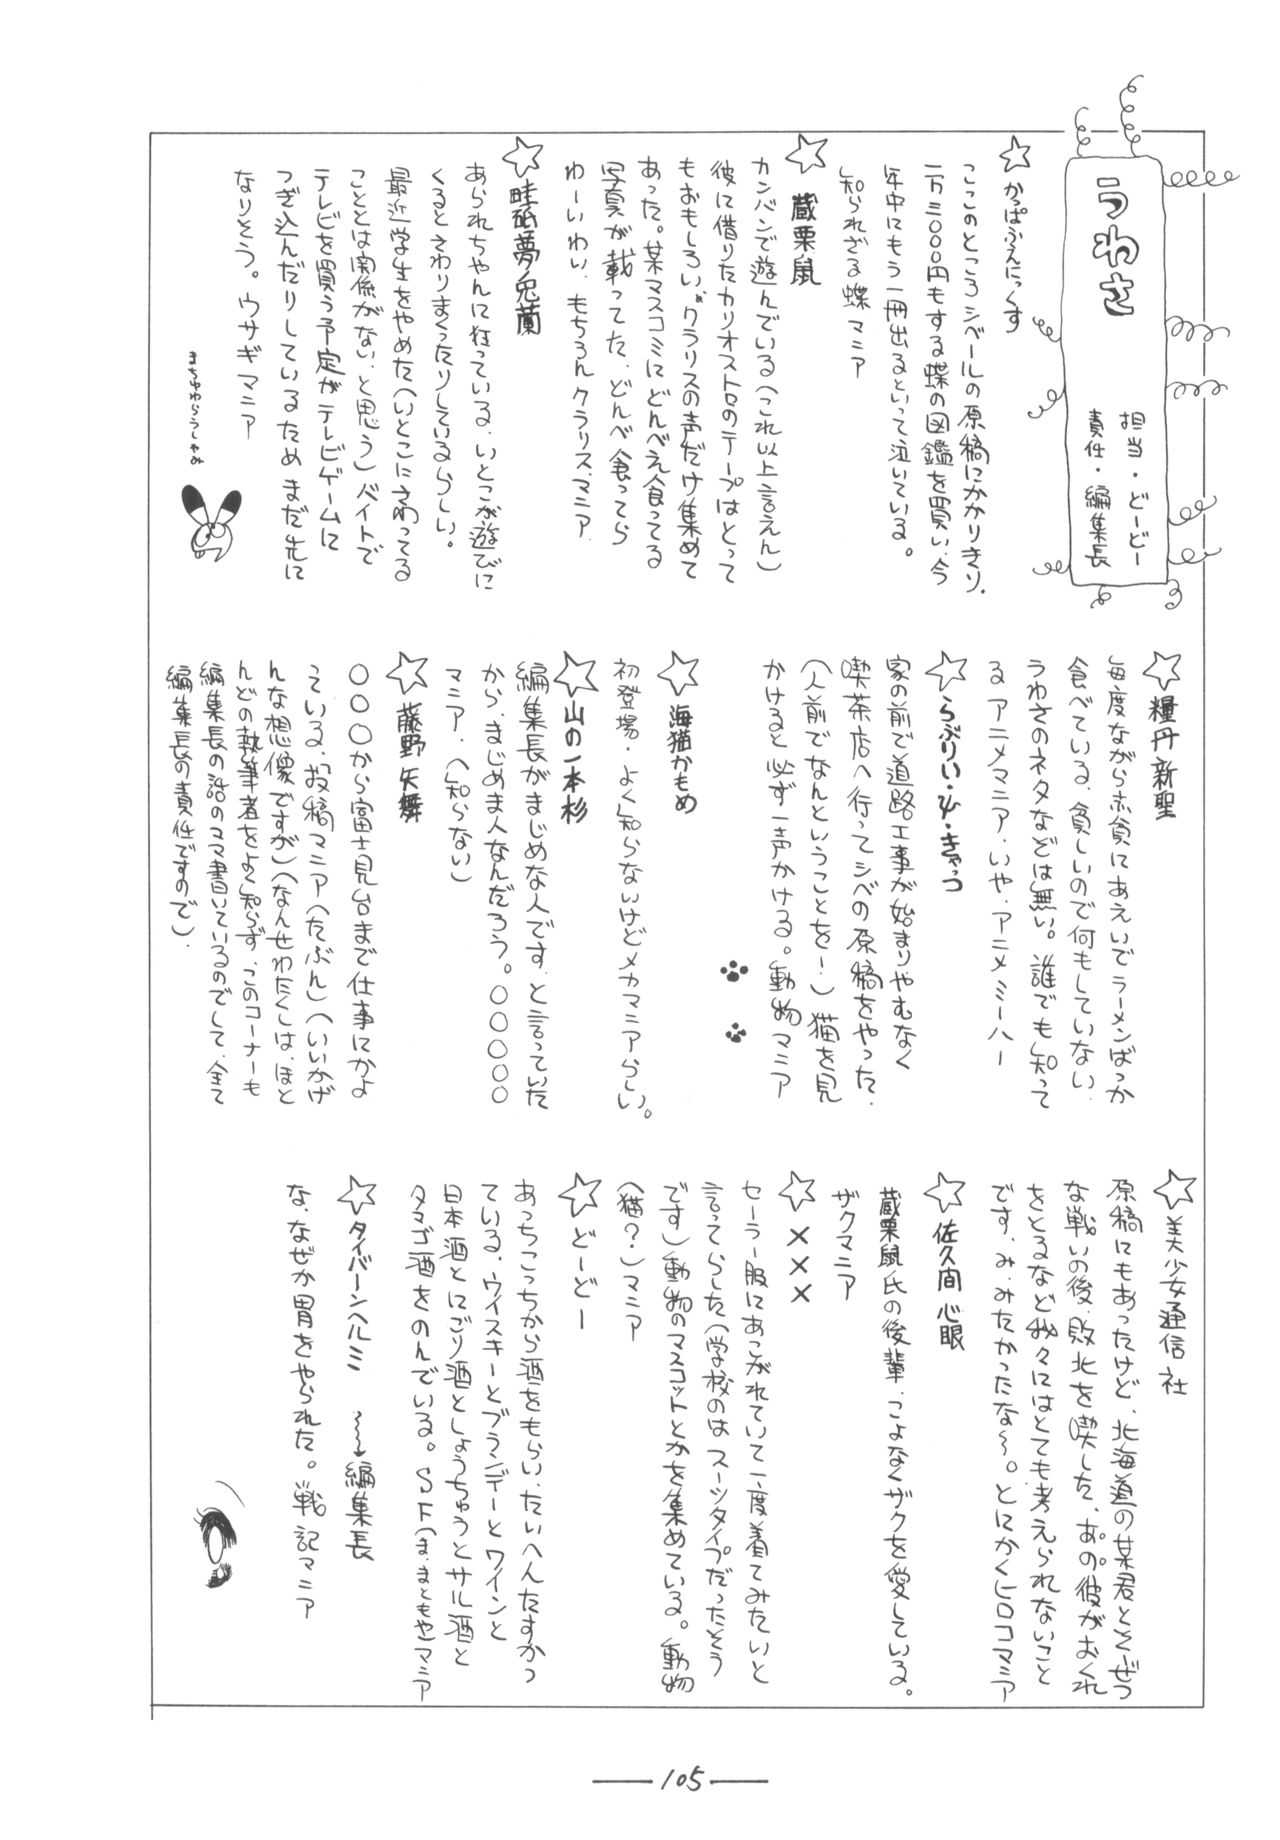 うわさ
担当・どーどー
責任・編集長
☆かっぱふぇにっくす
ここのところシベールの原稿にかかりきり.
二万三〇〇〇円もする蝶の図鑑を買い、今
年中にもう一冊出るといって泣いている。
知られざる蝶マニア
☆蔵栗鼠
カンバンで遊んでいる(これ以上言えん)
彼に借りたカリオストロのテープはとって
もおもしろい〝クラリスの声だけ集めて
あった。某マスコミにどんべえ食ってる
写真が載ってた、どんべ食ってら
わーいわい、もちろんクラリス.マニア.
☆畦砥夢兎蘭
あられちゃんに狂っている、いとこが遊びに
くるとさわりまくったりしているらしい。
最近学生をやめた(いとこにさわってる
こととは関係がない、と思う)バイトで
テレビを買う予定がテレビゲームに
つぎ込んだりしているため まだ先に
なりそう。ウサギマニア
まちゅゆらうしゃみ
☆糧丹新聖
毎度ながら赤貧にあえいでラーメンばっか
食べている、貧しいので何もしていない.
うわさのネタなどは無い。誰でも知って
るアニメマニア.いや.アニメミーハー
☆らぶりい・ψ・きゃっつ
家の前で道路工事が始まりやむなく
喫茶店へ行ってシベの原稿をやった.
(人前でなんということを!)猫を見
かけると必ず一声かける。動物マニア
☆海猫かもめ
初登場・よく知らないけどメカマニアらしい。
☆山の一本杉
編集長がまじめな人です、と言っていた
から、まじめま人なんだろう。〇〇〇〇〇
マニア.(知らない)
☆藤野矢舞
〇〇〇から富士見台まで仕事にかよ
っている、投稿マニア(たぶん)(いいかげ
んな想像ですが)(なんせわたくしは、ほと
んどの執筆者をよく知らず、このコーナーも
編集長の話のママ書いているのでして、全て
編集長の責任ですので).
☆美少女通信社
原稿にもあったけど、北海道の某君とくぜつ
な戦いの後、敗北を喫した、あの彼がおくれ
をとるなど我々にはとても考えられないこと
です、み、みたかったな〜。とにかくヒロコマニア
☆佐久間心眼
蔵栗鼠氏の後輩、こよなくザクを愛している。
ザクマニア
☆×××
セーラー服にあこがれていて一度着てみたいと
言ってらした(学校のはスーツタイプだったそう
です)動物のマスコットとかを集めている。動物
(猫?)マニア
☆どーどー
あっちこっちから酒をもらい、たいへんたすかっ
ている、ウイスキーとブランデーとワインと
日本酒とにごり酒としょうちゅうとサル酒と
タマゴ酒をのんでいる。SF(ま、まともや)マニア
☆タイバーンヘルミ 〜〜編集長
な、なぜか胃をやられた。戦記マニア
105